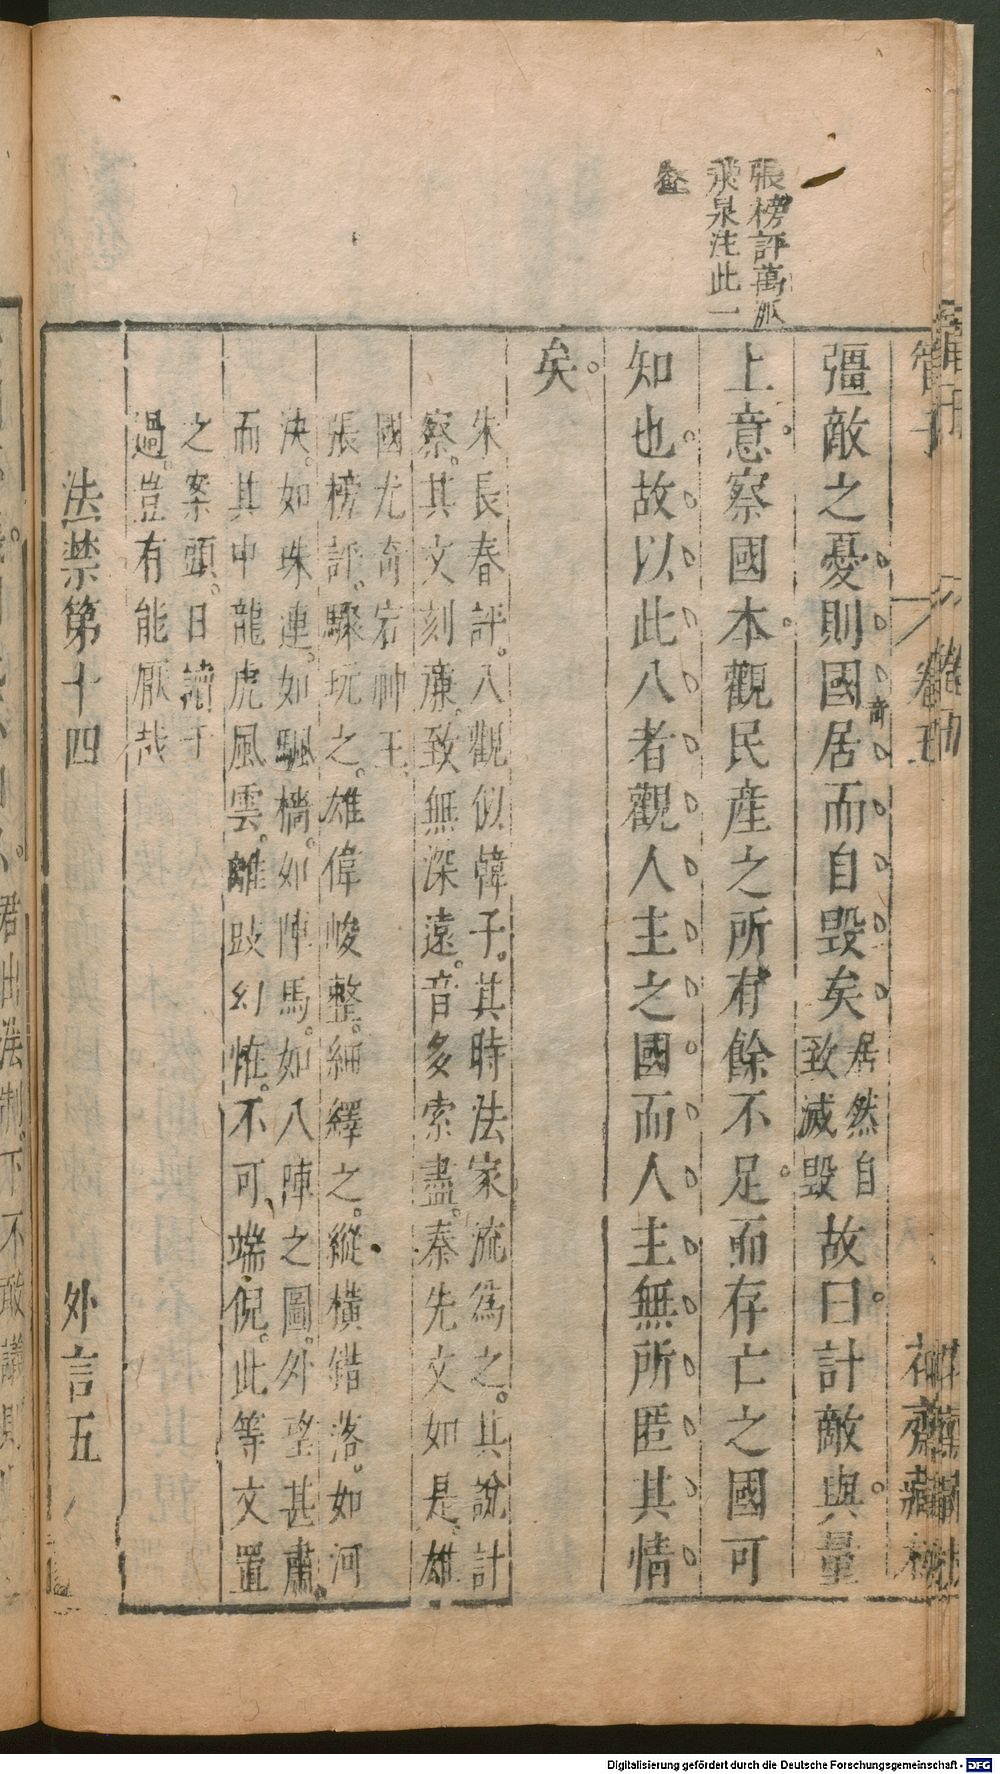 張榜評萬派
飛泉注此一
壑
彊敵之憂則國居而自毁矣居然自致滅毁故曰計敵與量
上意察國本觀民産之所有餘不足而存亡之國可
知也故以此八者觀人主之國而人主無所匿其情
矣
朱長春評。八觀似韓子。其時法家流爲之。其說計
察。其文刻亷。致無深遠。音多索盡。秦先文如是。雄
國尤奇宕神王
張榜評。驟玩之。雄偉峻整。細繹之。縱橫錯落。如河
決。如珠連。如颿檣。如陣馬。如八陣之圖。外望甚肅。
而其中龍虎風雲。離跂幻惟。不可端倪。此等文置
之案頭。日讀于
過。豈有能厭哉
法禁第十四 外言五
管子 卷五 花齋藏板
Digitalisierung gefördert durch die Deutsche Forschungsgemeinschaft - DFG